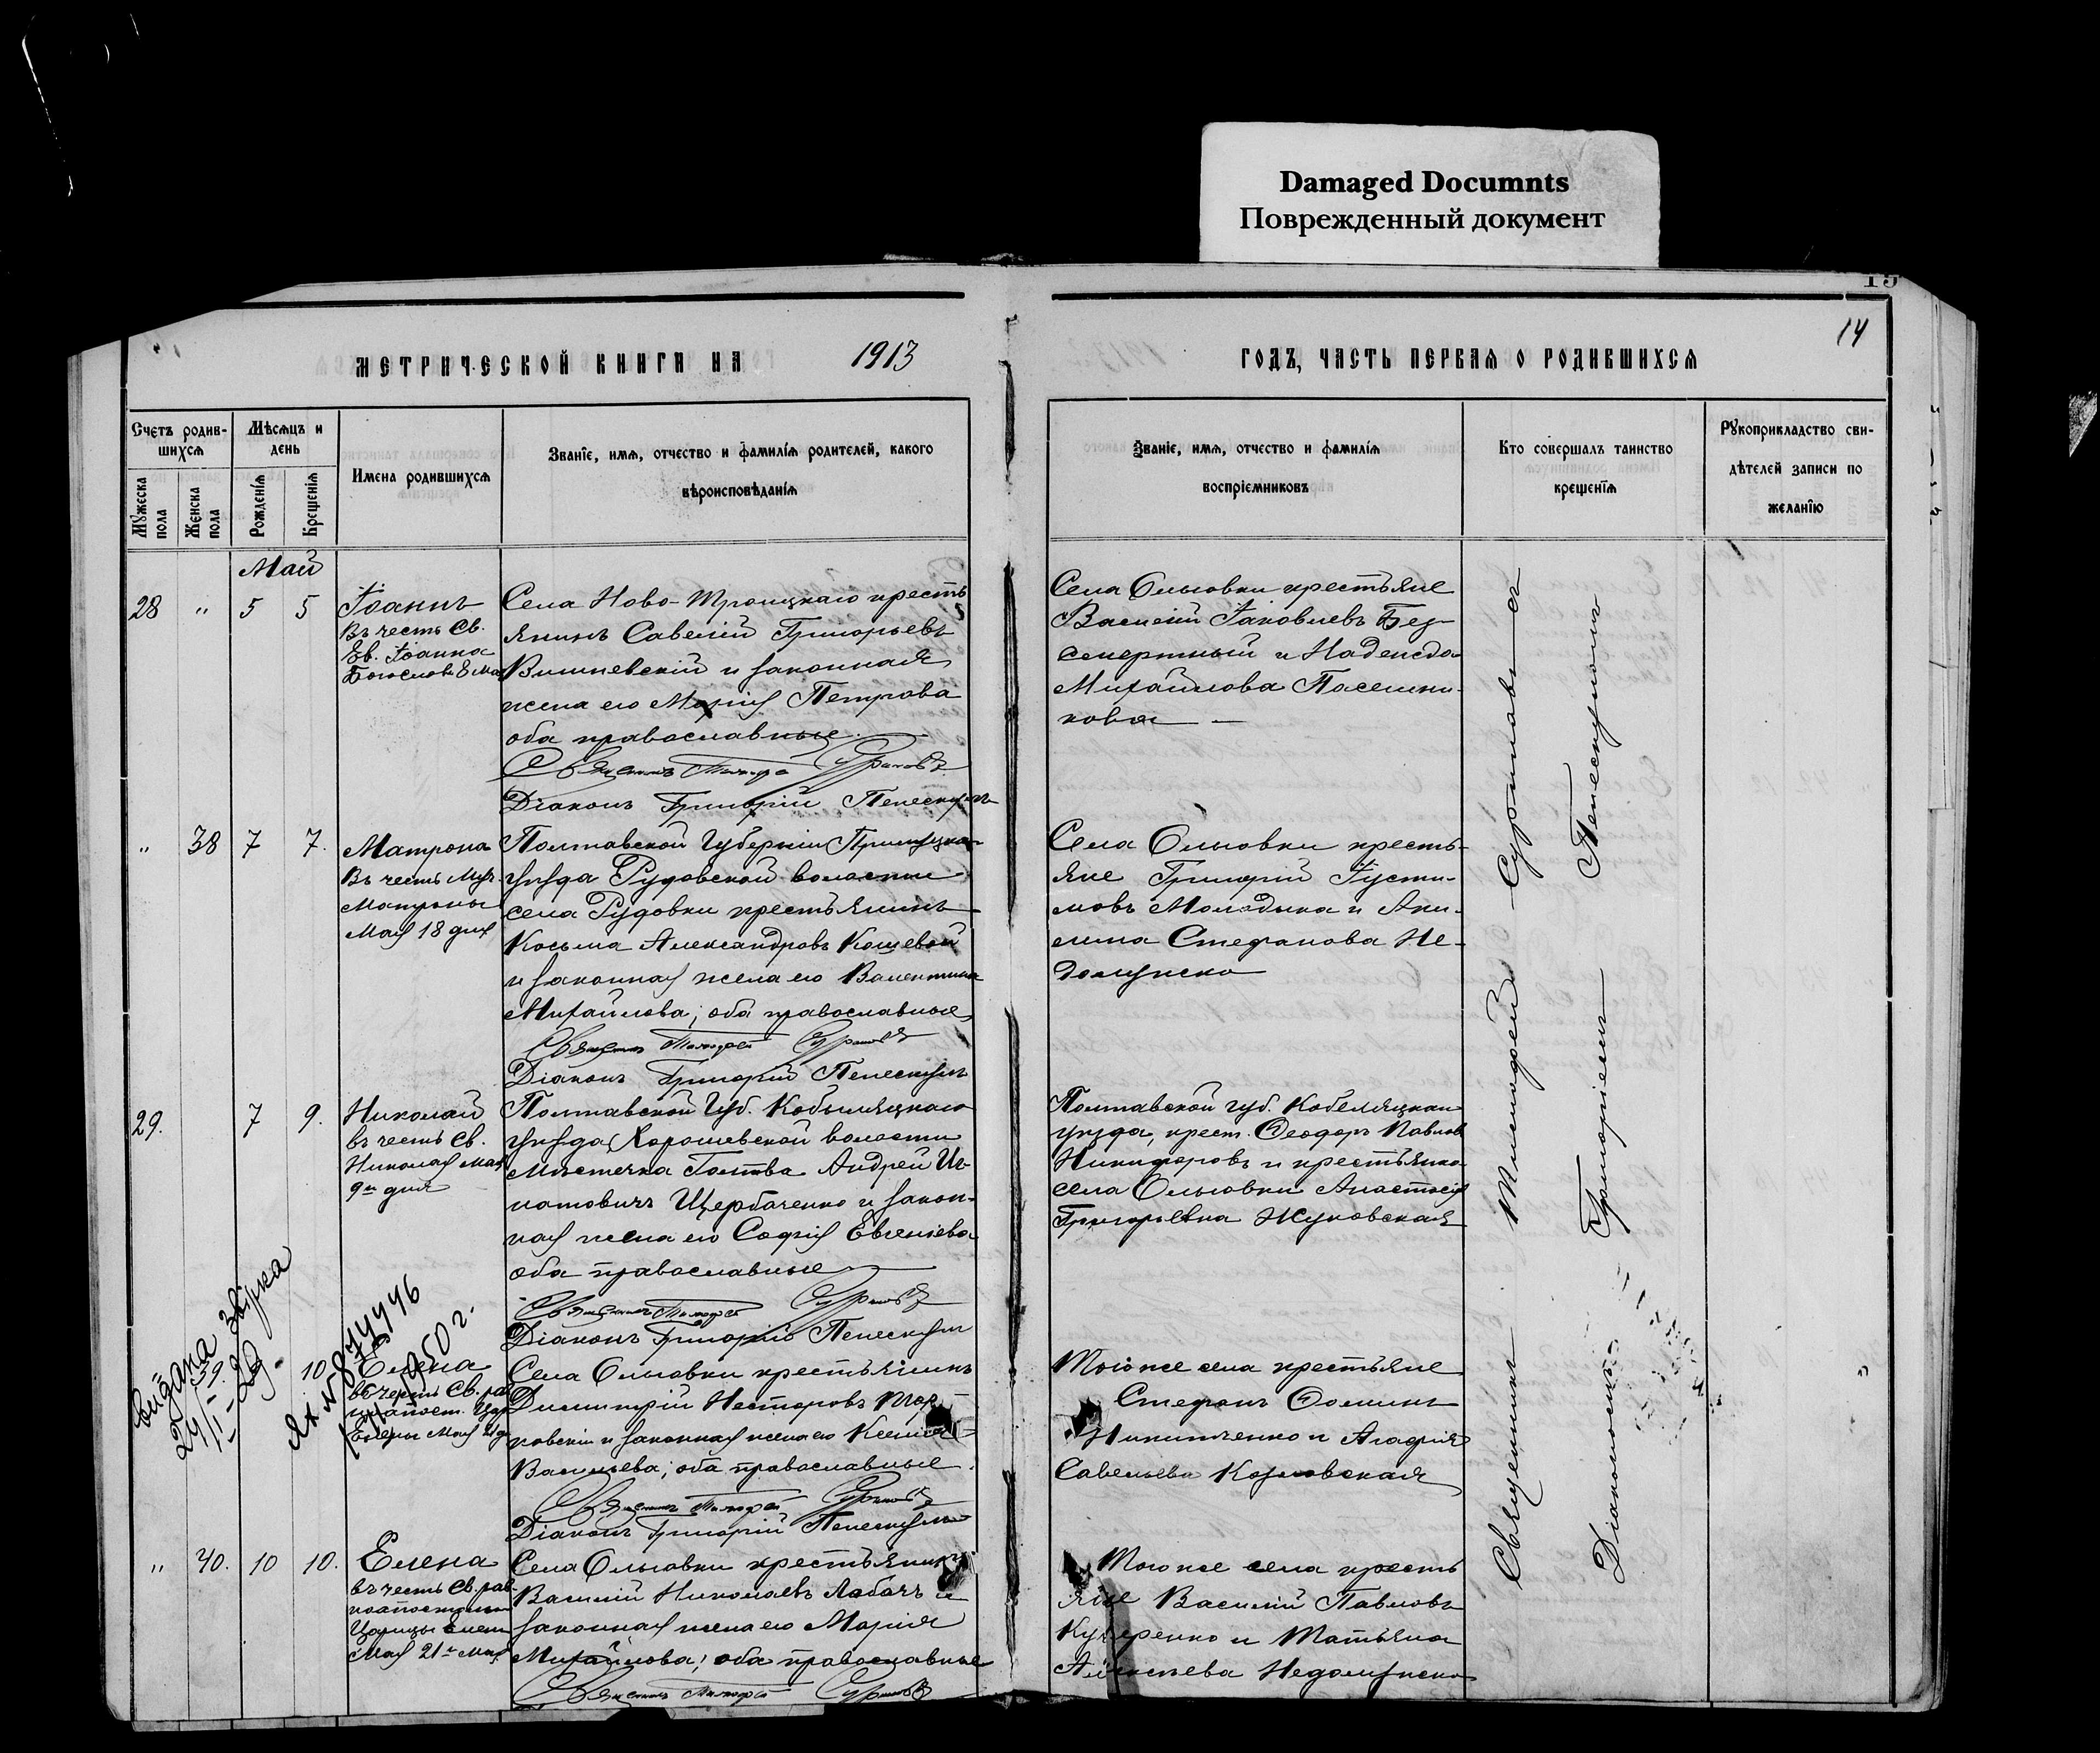 Damaged Documnts
Поврежденный документ
15
14
МЕТРИЧЕСКОЙ КНИГИ НА 1913
ГОДЪ, ЧАСТЬ ПЕРВАЯ О РОДИВШИХСЯ
Счетъ родив-
шихся
Мужеска пола
Женска пола
Мѣсяцъ и
день
Рожденїя
Крещенїя
Имена родившихся
Званїе, имя, отчество и фамилїя родителей, какого
вѣроисповѣданїя
Званїе, имя, отчество и фамилїя
воспрїемниковъ
Кто совершалъ таинство
крещенїя
Рукоприкладство сви-
дѣтелей записи по
желанїю
Май
28 " 5 5
Іоаннъ
Въ честь Св.
Ев. Іоанна
Богослова 8 мая
Села Ново-Троицкаго кресть
янинъ Савелій Григорьевъ
Вишневскій и законная
жена его Марія Петрова
оба православные.
Священникъ Тимофей Суриновъ
Діаконъ Григорій Пелескулъ
Села Ольговки крестьяне
Василій Іаковлевъ Без-
смертный и Надежда
Михайлова Пасешни-
кова
" 38 7 7.
Матрона
Въ честь Муч.
Матроны
Мая 18 дня
Полтавской Губерніи Прилуцкаго
уѣзда Рудовской волости
села Рудовки крестьянинъ
Косьма Александровъ Кошевой
и законная жена его Валентина
Михайлова; оба православные
Священникъ Тимофей Суриновъ
Діаконъ Григорій Пелескулъ
Села Ольговки кресть-
яне Григорій Іусти-
новъ Молодыка и Аки-
лина Стефанова Не-
долужско
29. 7 9.
Николай
въ честь Св.
Николая мая
9го дня
Полтавской Губ. Кобыляцкаго
уѣзда, Хорошевской волости
мѣстечка Голтва Андрей Иг-
натовичъ Щербаченко и закон-
ная жена его Софія Евгеніева
оба православные
Священникъ Тимофей Суриновъ
Діаконъ Григорій Пелескулъ
Полтавской губ. Кобеляцкаго
уѣзда, крест. Ѳеодоръ Павловъ
Никифоровъ и крестьянка
села Ольговки Анастасія
Григорьевна Жуковская
видана звірка
39. 10
Елена
въ честь Св. рав
Елены Мая 21 дн
1950 г.
Села Ольговки крестьянинъ
Димитрій Несторовъ
и законная жена его Ксенія
Васильева; оба православные.
Священникъ Тимофей Суриновъ
Діаконъ Григорій Пелескулъ
Того же села крестьяне
Стефанъ Ѳоминъ
Никитченко и Агафія
Савельева Козловская
" 40. 10 10.
Елена
въ честь Св. рав-
ноапостольн
Царицы Елен
Мая 21го Мая
Села Ольговки крестьянинъ
Василій Николаевъ Лабачъ и
законная жена его Марія
Михайлова; оба православные
Священникъ Тимофей Суриновъ
Того же села кресть
яне Василій Павловъ
Кучеренко и Татьяна
Алексѣева Недолужско
Священникъ Тимофей Суриновъ
Діакономъ Григоріемъ Пелескуломъ